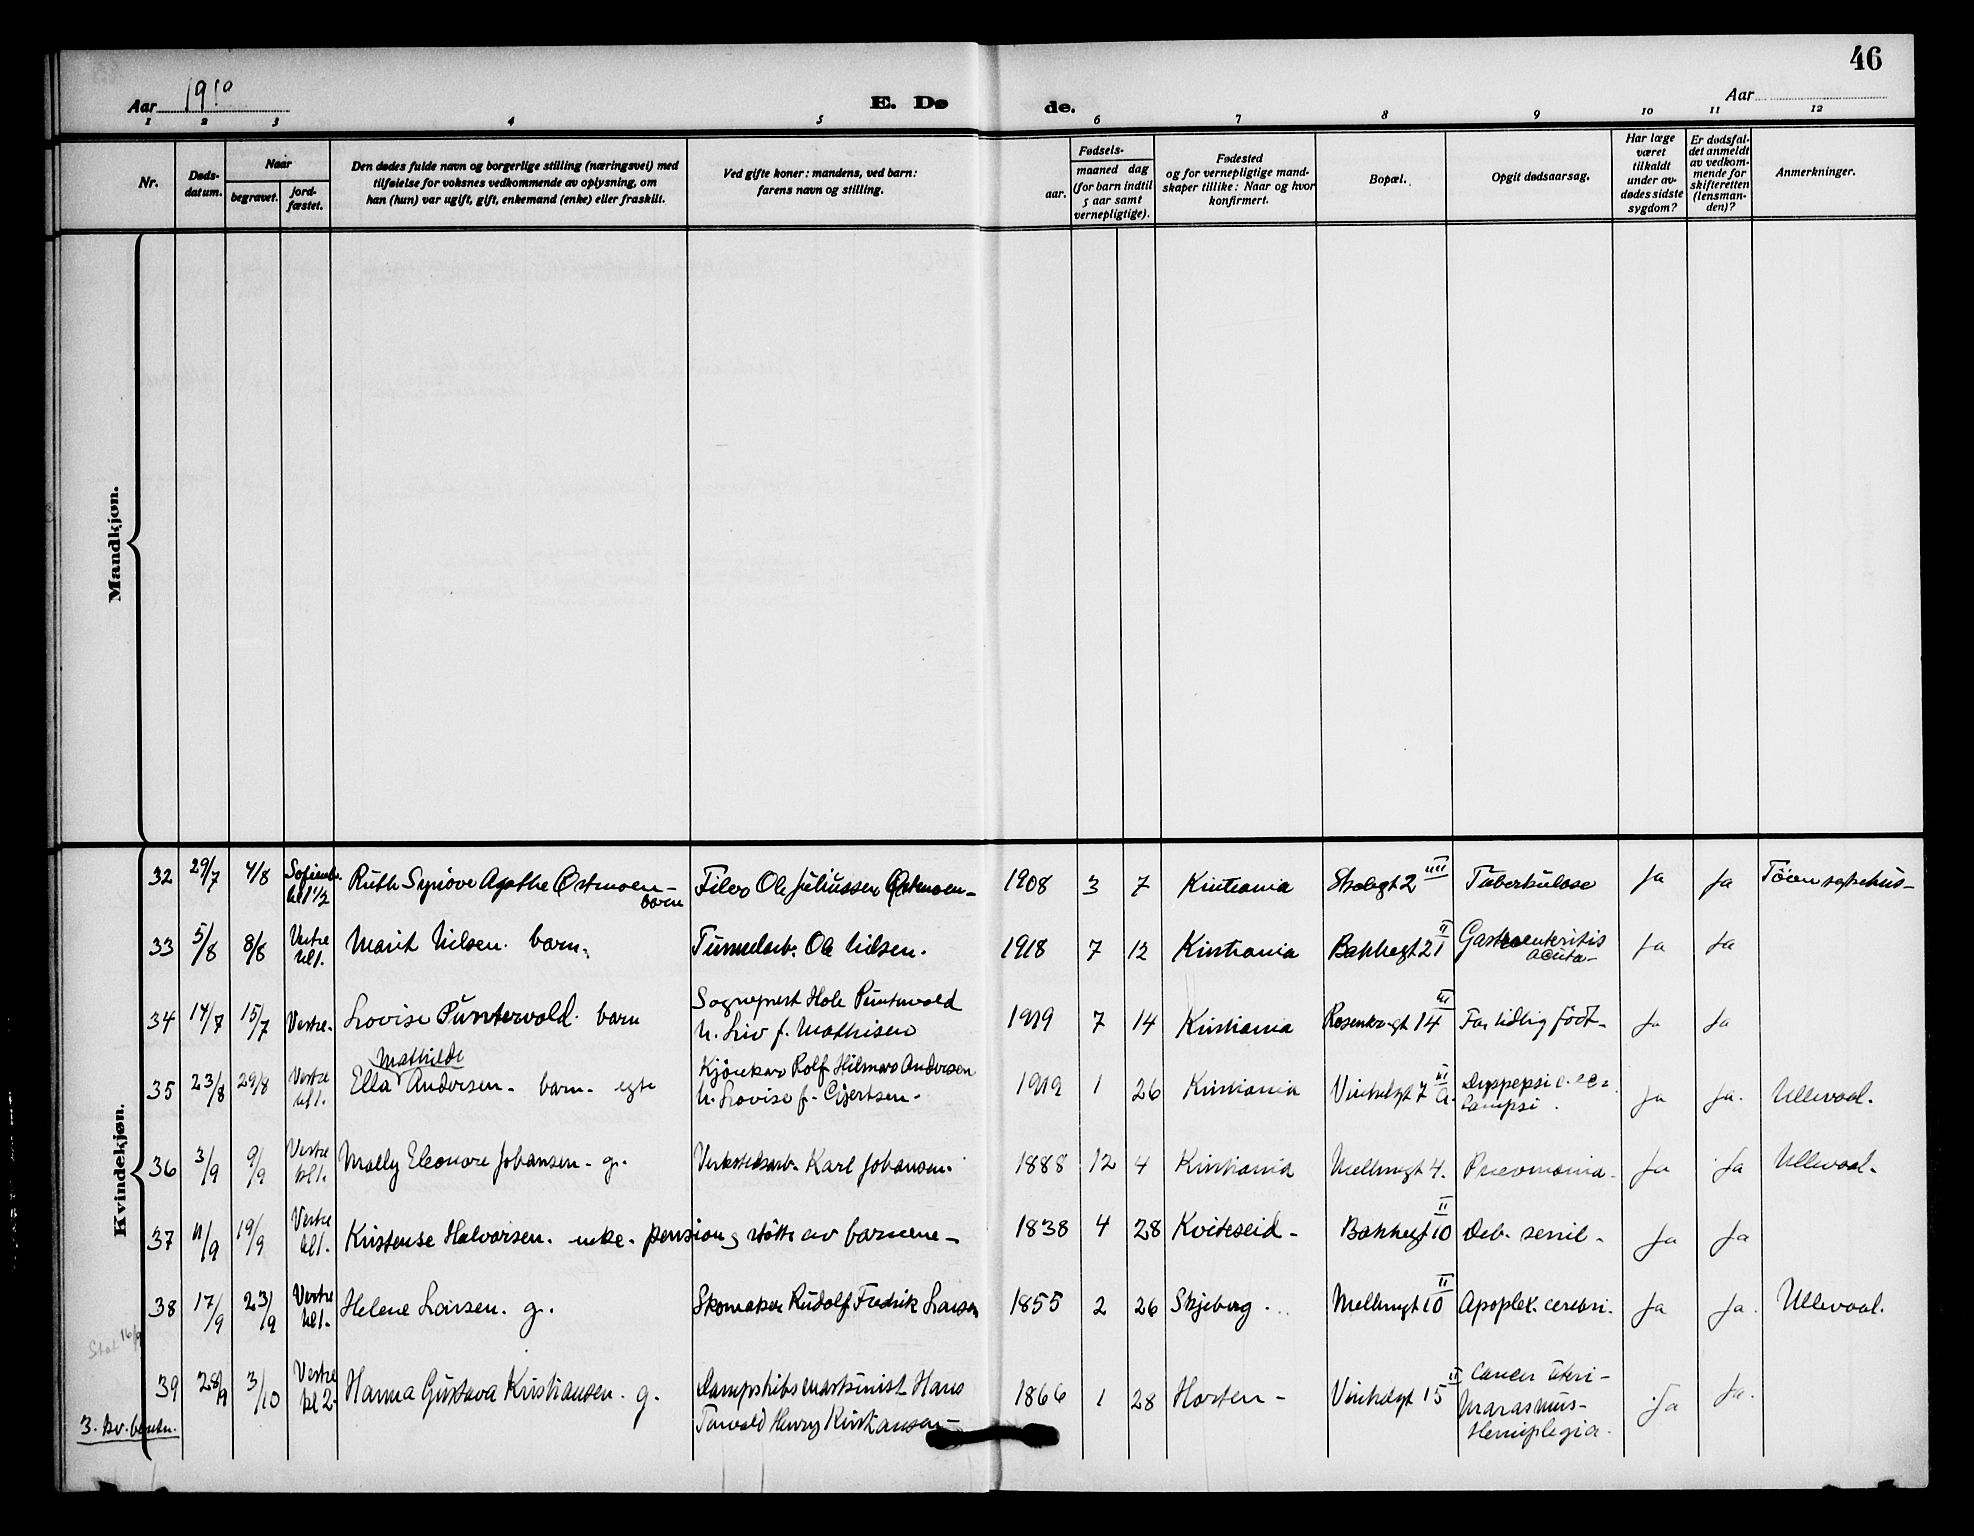 46
Aar 1919
E. Dø de.
Aar
1 2 3 4 5 6 7 8 9 10 11 12
Nr.
Døds-
datum.
Naar
begravet.
jord-
fæstet.
Den dødes fulde navn og borgerlige stilling (næringsvei) med
tilføielse for voksnes vedkommende av oplysning, om
han (hun) var ugift, gift, enkemand (enke) eller fraskilt.
Ved gifte koner: mandens, ved barn:
farens navn og stilling.
Fødsels-
aar.
maaned dag
(for barn indtil
5 aar samt
vernepligtige).
Fødested
og for vernepligtige mand-
skaper tillike: Naar og hvor
konfirmert.
Bopæl.
Opgit dødsaarsag.
Har læge
været
tilkaldt
under av-
dødes sidste
sygdom?
Er dødsfal-
det anmeldt
av vedkom-
mende for
skifteretten
(lensman-
den)?
Anmerkninger.
Mandkjøn.
Kvindekjøn.
32 29/7 4/8 Sofienb. kl 1 1/2 Ruth Synöve Agathe Østmoen - barn Filer Ole Juliussen Østmoen - 1908 3 7 Kristiania 2 IIII Tuberkulose Ja Ja Töien sykehus -
33 5/8 8/8 Vestre kl 1. Marit Nilsen. barn. Tunnelarb. Ole Nilsen. 1918 7 12 Kristiania Bakkegt 21 II Gastroenteritis acuta - Ja Ja
34 14/7 15/7 Vestre. Lovise Puntervold. barn Sogneprest Hole Puntervold
u. Liv f. Mathisen 1919 7 14 Kristiania Rosenkrgt 14 III For tidlig födt - Ja Ja
35 23/8 29/8 Vestre kl 1. Ella Mathilde Andersen - barn - egte Kjörekar Rolf Hilmar Andersen
u. Lovise f. Gjertsen - 1919 1 26 Kristiania Vinkelgt 7 a. III Dyspepsi c. ec=
lampsi. Ja Ja. Ullevaal.
36 3/9 9/9 Vestre kl 1. Molly Eleonore Johansen - g. Verkstedsarb. Karl Johansen. 1888 12 4 Kristiania Mellemgt 4. Pneumonia. Ja Ja Ullevaal.
37 11/9 19/9 Vestre kl 1. Kristense Halvorsen. enke. pension og støtte av barnene - 1838 4 28 Kviteseid - Bakkegt 10 II Deb. senil - Ja Ja
38 17/9 23/9 Vestre kl 1. Helene Larsen. g. Skomaker Rudolf Fredrik Larsen 1855 2 26 Skjeberg. Mellemgt 10 II Apoplex. cerebri. Ja Ja. Ullevaal.
16/9
39 28/9 3/10 Vestre kl 2. Hanna Gustava Kristiansen. g. Dampskibsmaskinist Hans
Torvald Henry Kristiansen - 1866 1 28 Horten - Vinkelgt 15 II Cancer uteri -
Marasmus -
Hemiplegia. Ja Ja.